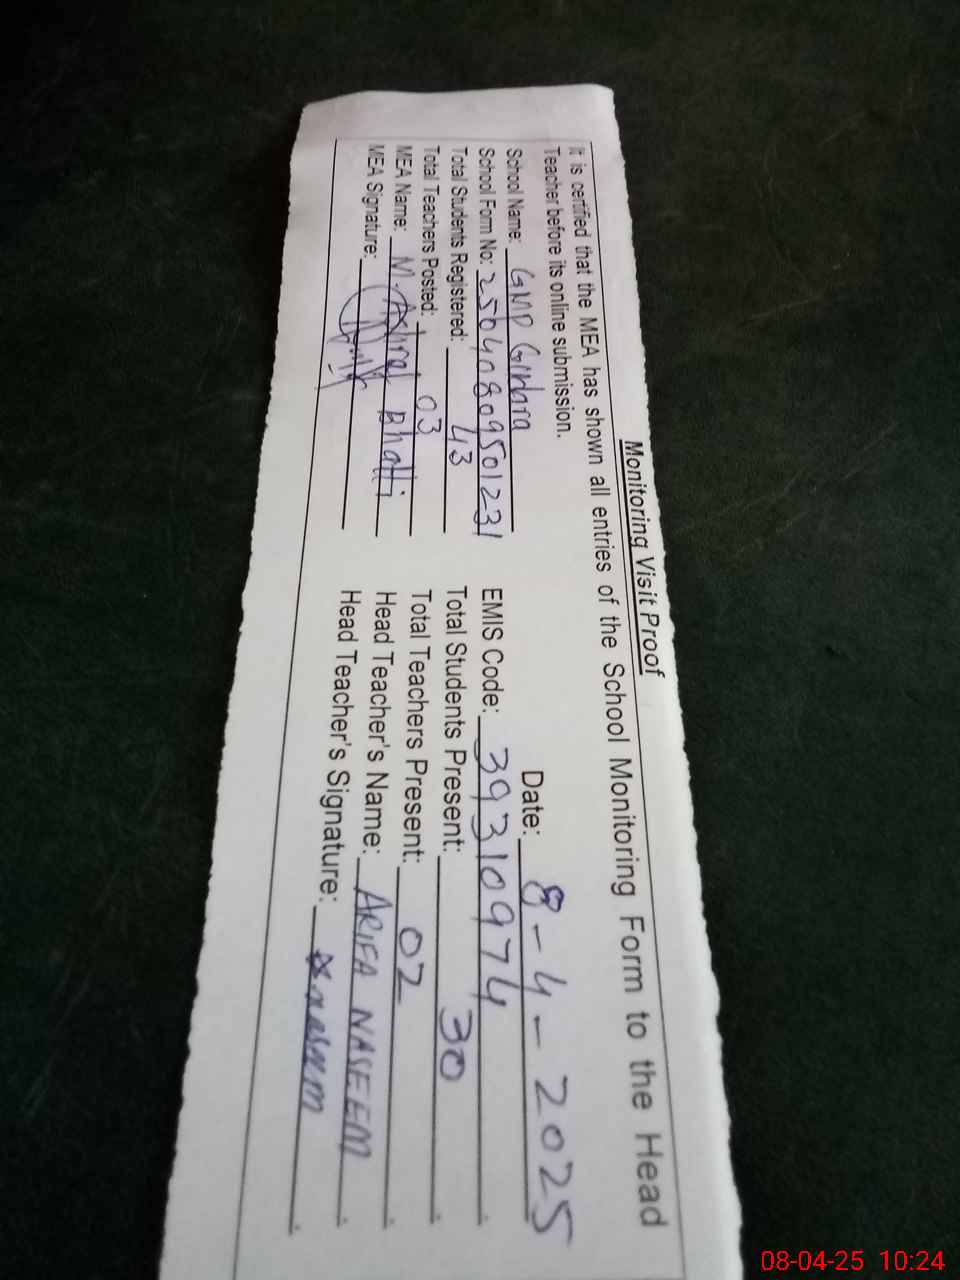 Monitoring Visit Proof
It is certified that the MEA has shown all entries of the School Monitoring Form to the Head
Teacher before its online submission.
Date: 8-4-2025
School Name: GMP
EMIS Code: 39310974
School Form No: 25040809501231
Total Students Present: 30
Total Students Registered: 43
Total Teachers Present: 02
Total Teachers Posted: 03
Head Teacher's Name: ARIFA NASEEM
MEA Name: M. Ashraf Bhatti
Head Teacher's Signature:
MEA Signature:
08-04-25 10:24